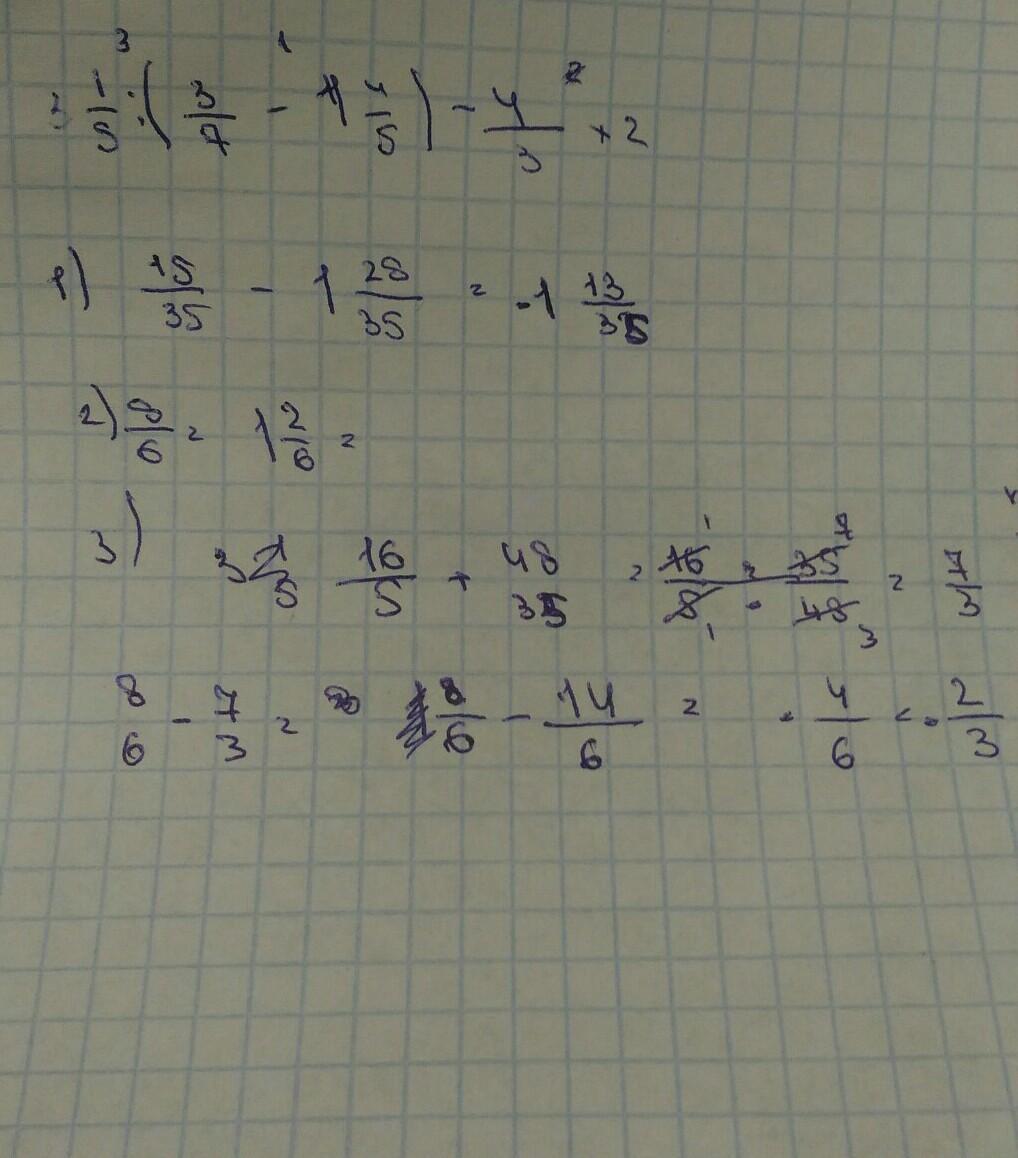 3 1
3 1/5 : ( 3/7 - 1 4/5 ) - 4/3 + 2
1) 15/35 - 1 28/35 = -1 13/35
2) 8/6 = 1 2/6 =
3) 3 1/5 16/5 + 48/35 = 16/5 · 35/48 = 7/3
8/6 - 7/3 = 8/6 - 14/6 = - 4/6 = - 2/3